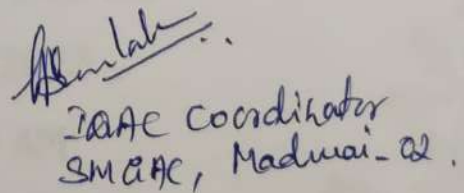 IQAC Coordinator
SMGAC, Madurai-02.